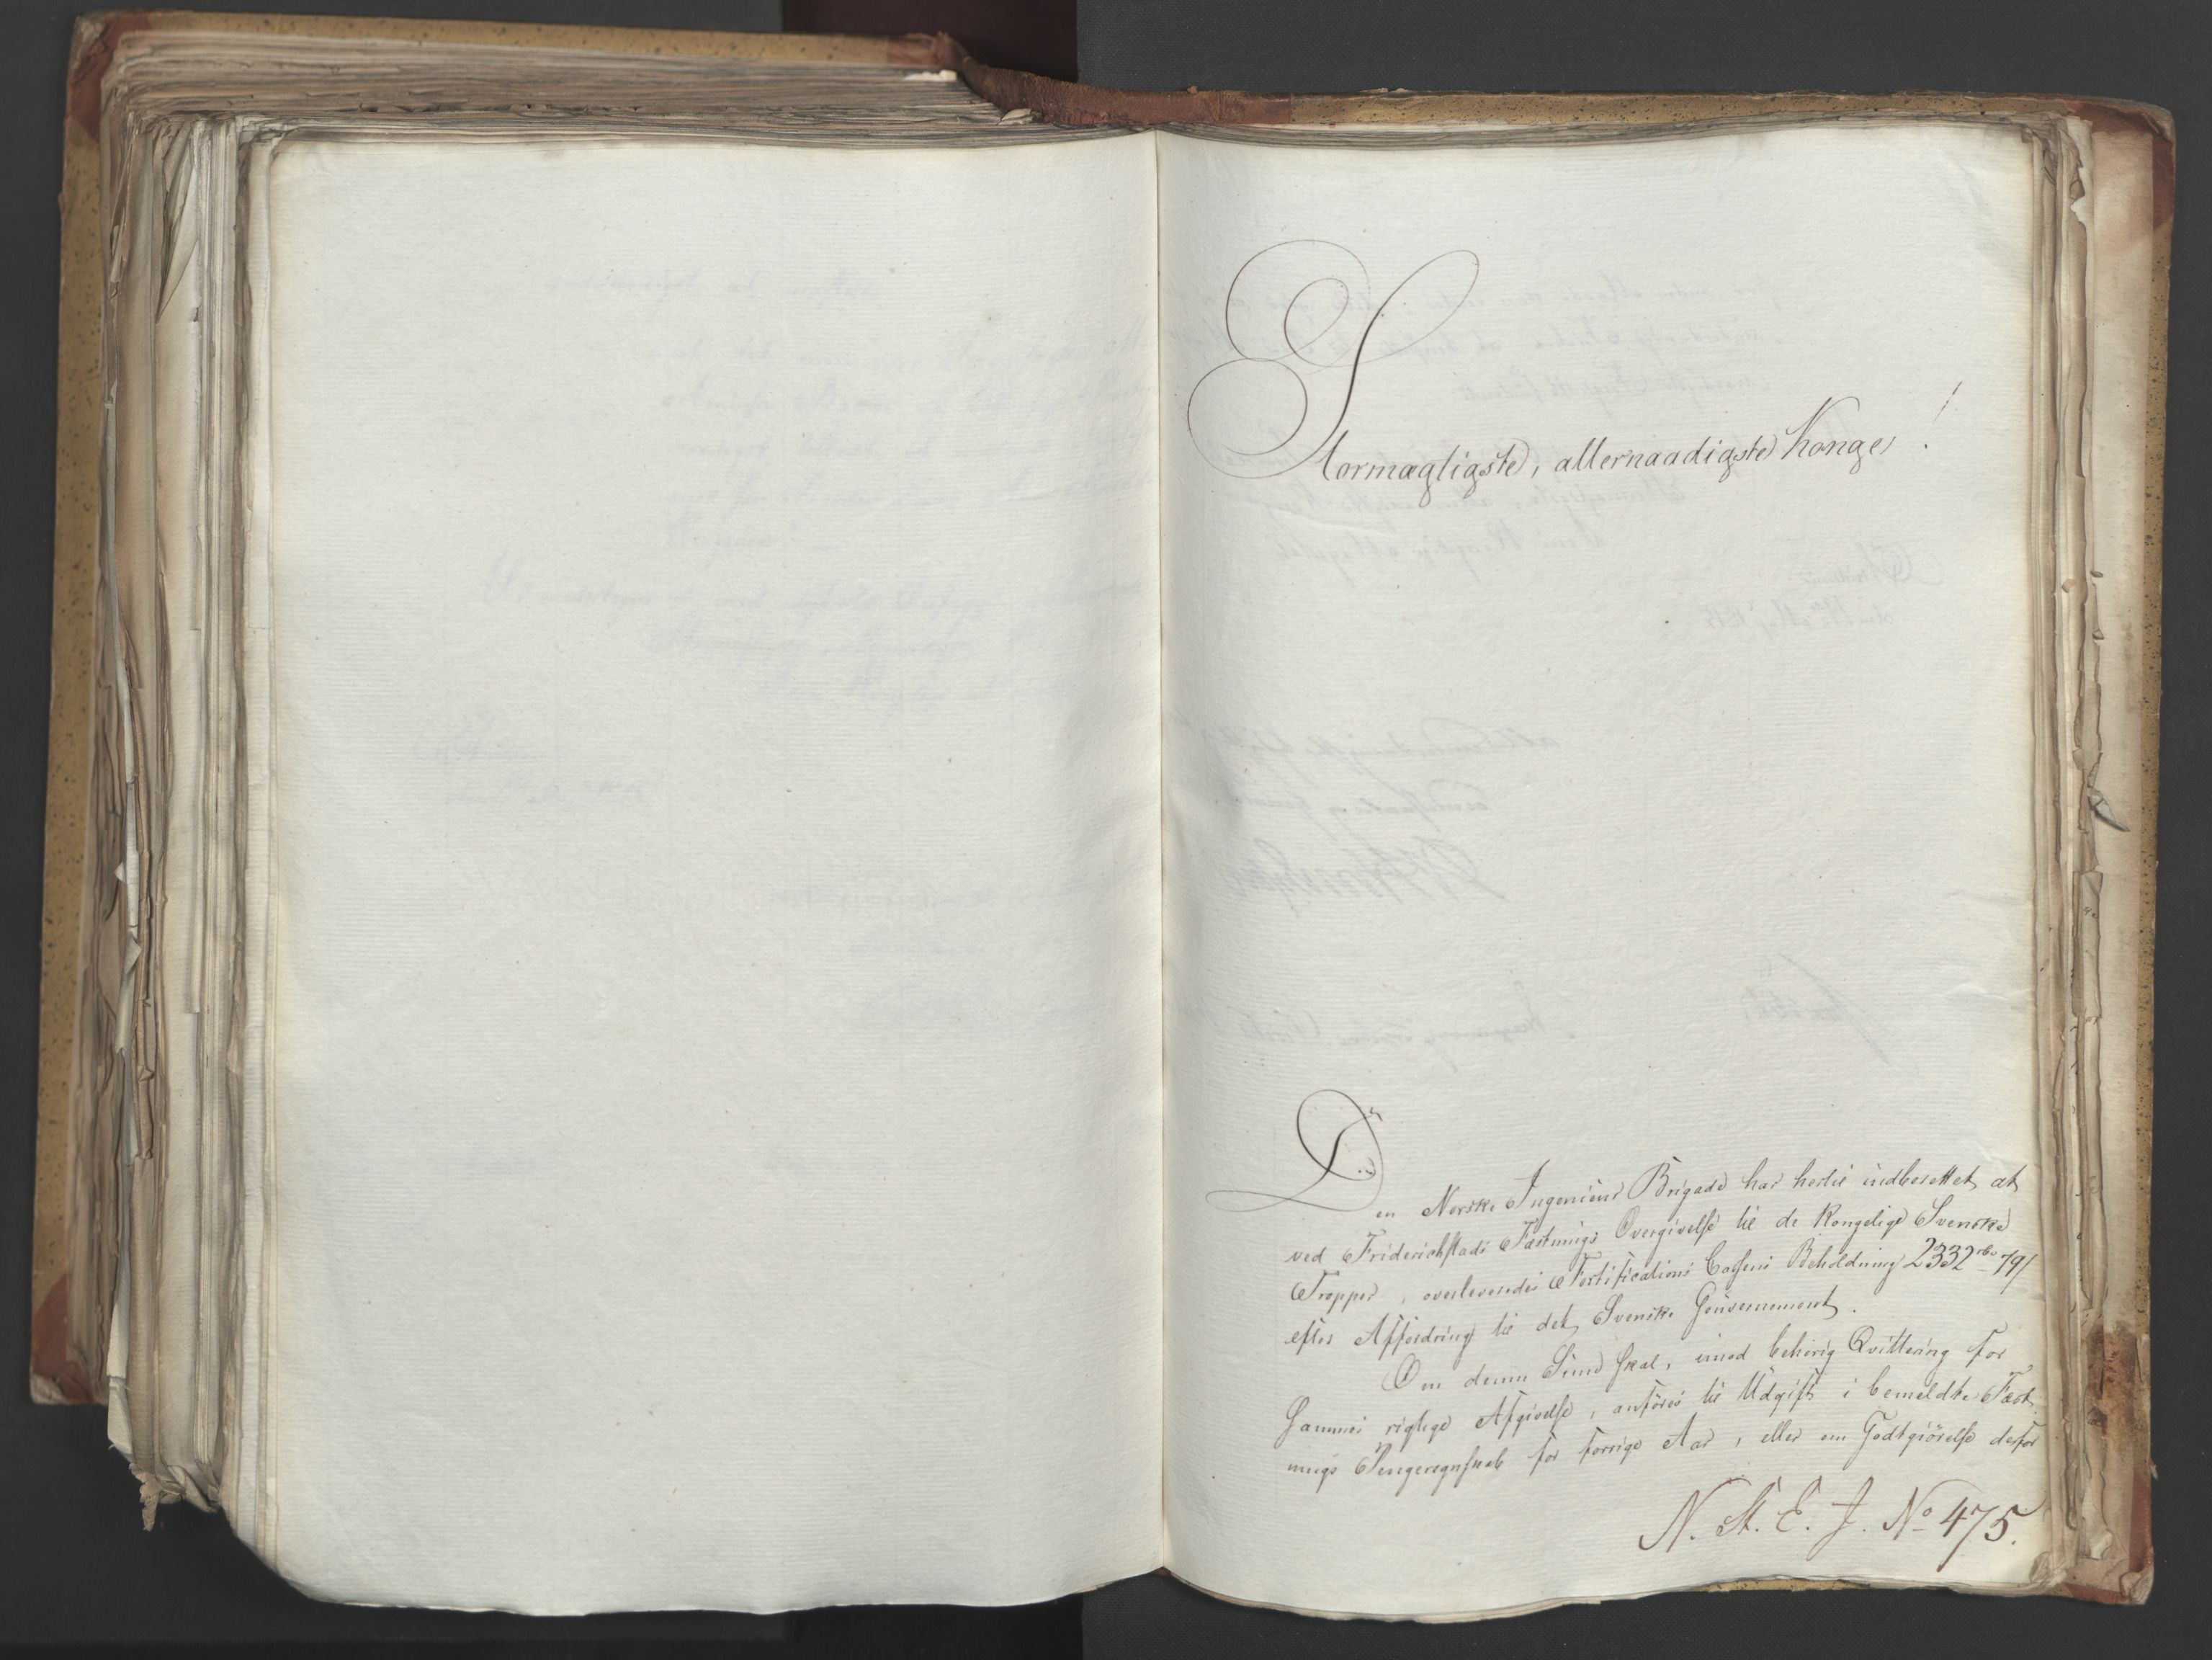 Stormægtigste, allernaadigste Konge!
Den Norske Ingenieur Brigade har hertil indberettet at
ved Friderichstads Fæstnings Overgivelse til de Kongelige Svenske
Tropper, overleveredes Fortifications Cassens Beholdning 2332 rbd 79/
efter Affordring til det Svenske Gouvernement.
Om denne Sum skal, imod behörig Qvittering for
Sammes rigtige Afgivelse, anföres til Udgift i bemeldte Fæst
nings Pengeregnskab for forrige Aar, eller om Godtgiörelse derfor
N. St. E. J. No 475.